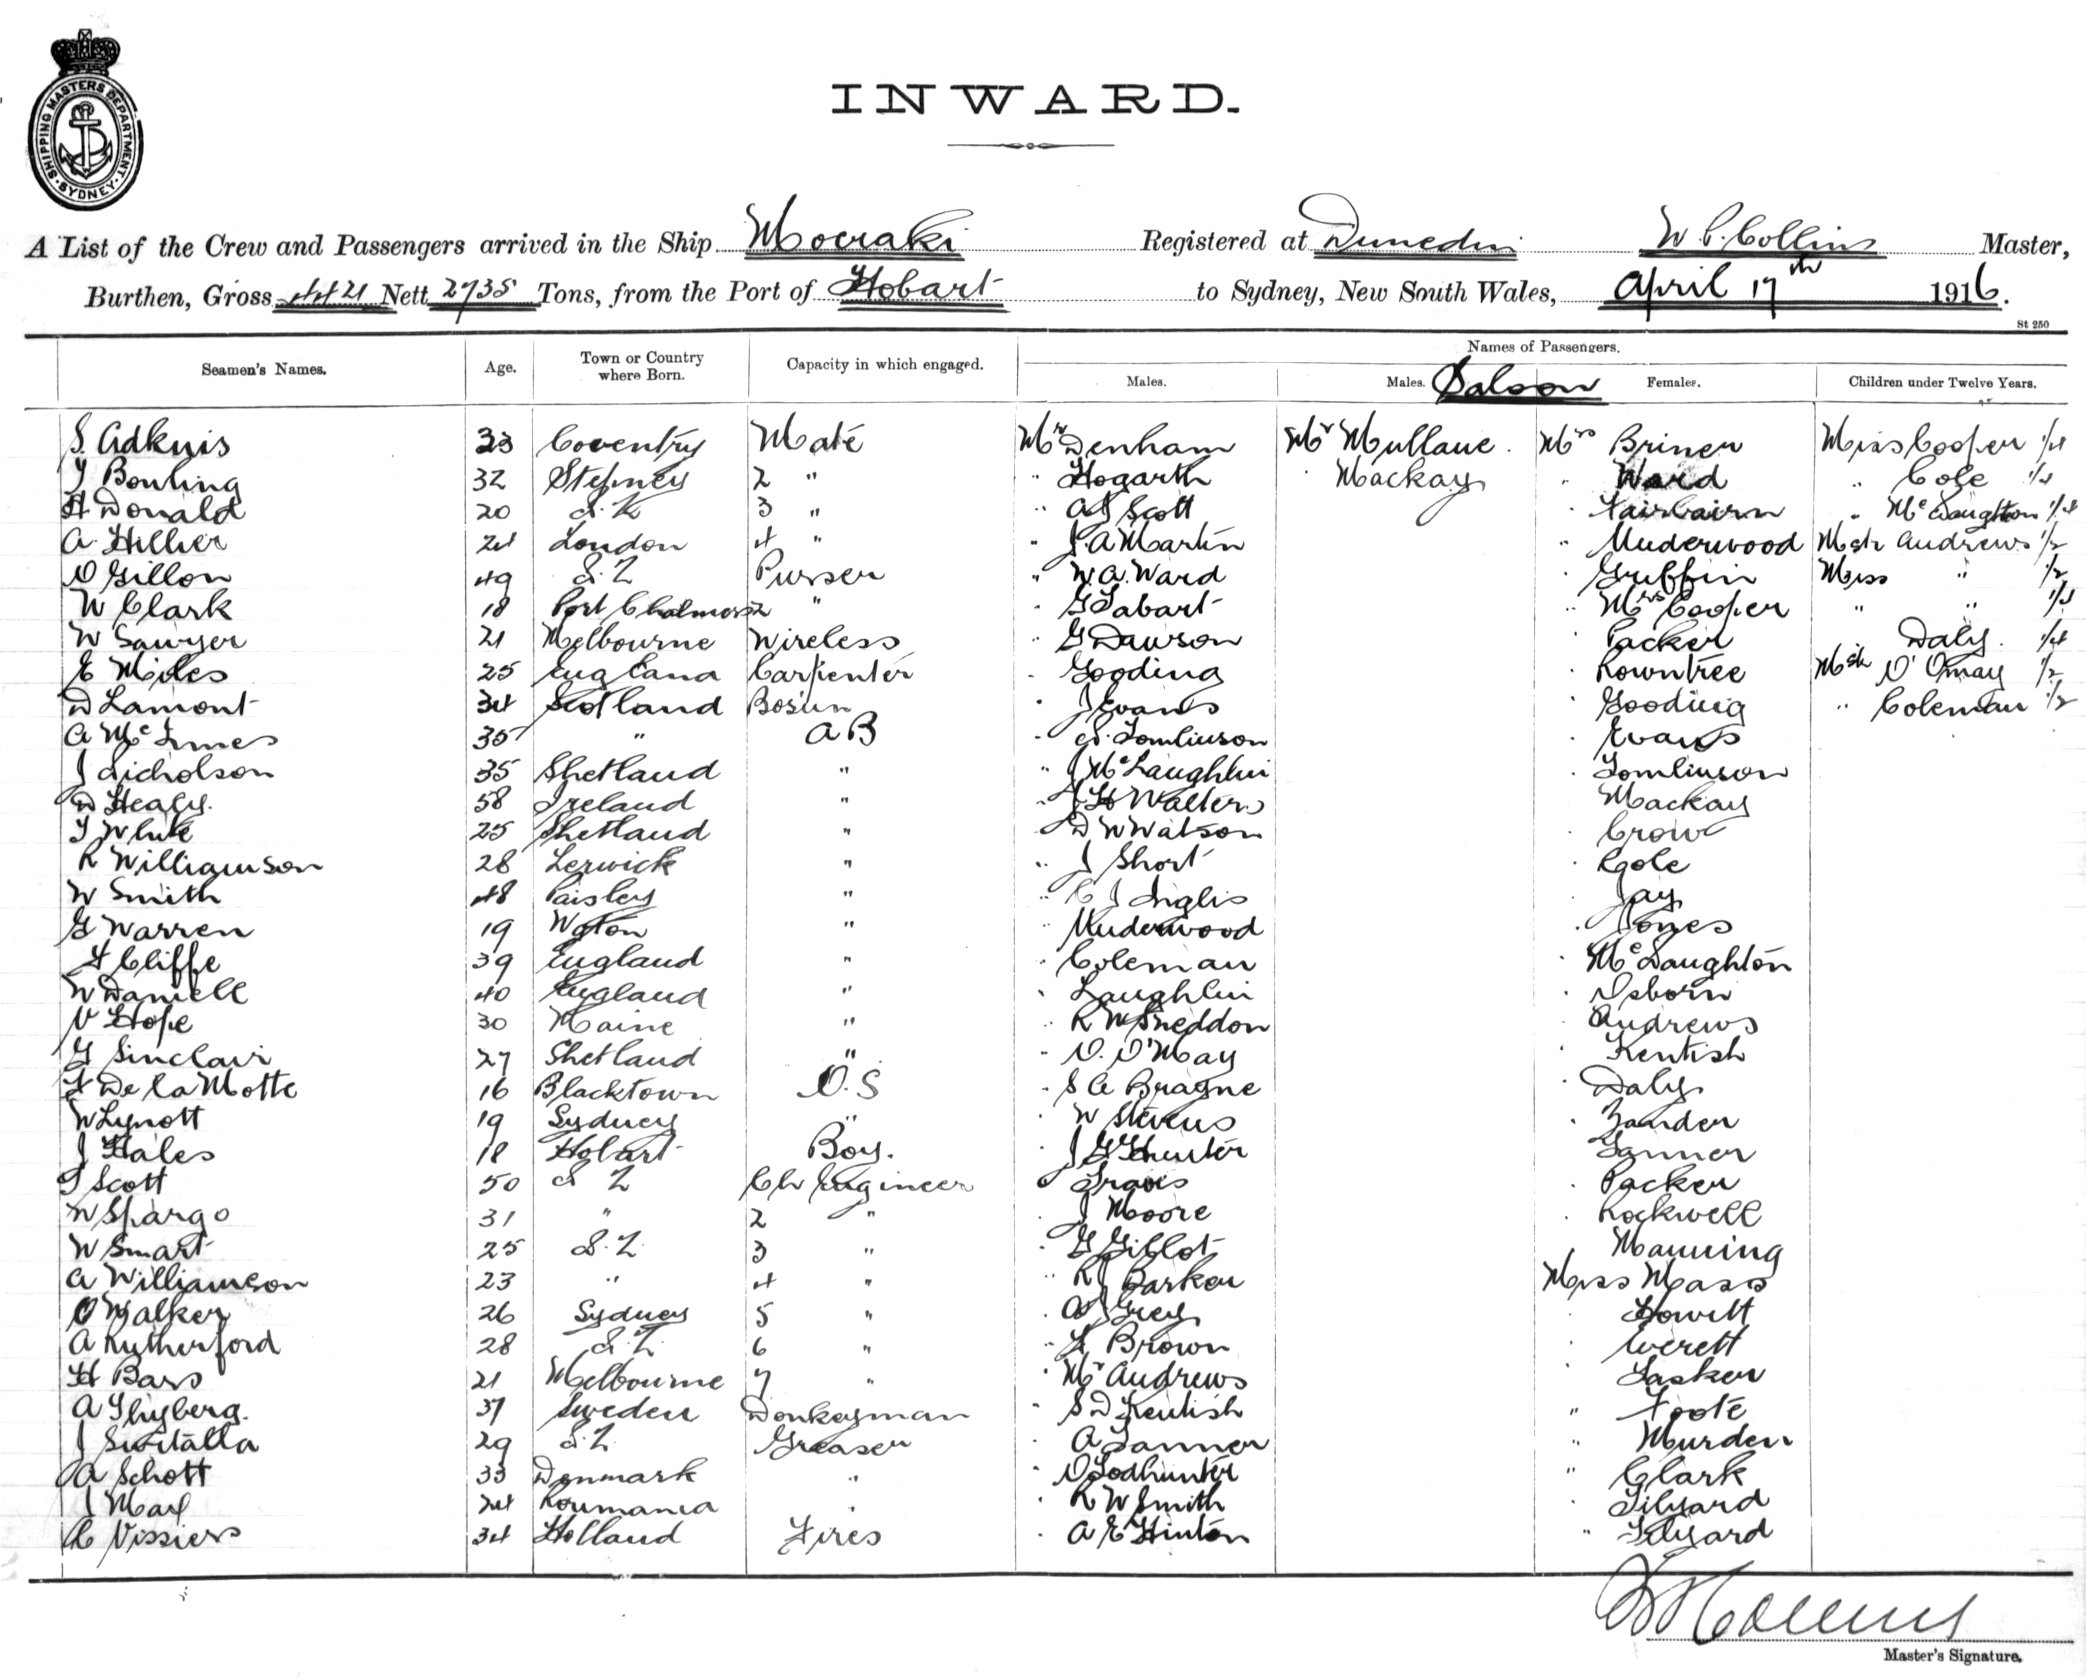 SHIPPING MASTERS DEPARTMENT
SYDNEY
INWARD.
A List of the Crew and Passengers arrived in the Ship Moeraki Registered at Dunedin W C Collins Master,
Burthen, Gross 4421 Nett 2735 Tons, from the Port of Hobart to Sydney, New South Wales, April 17th 1916.
St 250
Seamen's Names. Age. Town or Country where Born. Capacity in which engaged. Names of Passengers.
Males. Males. Saloon Females. Children under Twelve Years.
S. Adkins 33 Coventry Mate Mr Denham Mr Mullane. Mrs Briner Miss Cooper 1/4
Bowling 32 Stepney 2 " " Hogarth Mackay " Ward " Cole 1/4
H Donald 20 3 " " A J Scott " Fairbairn " McNaughton 1/4
A. Hillier 24 London 4 " " J. A Martin " Underwood Mstr Andrews 1/2
D Gillon 49 N. Z Purser " W. A. Ward " Griffin Miss " 1/2
W Clark 18 Port Chalmers 2 " " G Tabart " Mrs Cooper " " 1/4
W Sawyer 21 Melbourne Wireless " G Dawson " Packer Daly. 1/4
E Miles 25 England Carpenter " Gooding " Rowntree Mstr O'May 1/2
D Lamont 34 Scotland Bosun " J Evans " Gooding " Coleman 1/2
A McInnes 35 " A B " Tomlinson " Evans
J Nicholson 35 Shetland " " J McLaughlin " Tomlinson
D Healy. 58 Ireland " " J H Walters " Mackay
T White 25 Shetland " " D W Watson " Crow
R Williamson 28 Lerwick " " J Short " Cole
W Smith 48 Paisley " " C J Inglis " Jay
G Warren 19 Wgton " " Underwood " Jones
F Cliffe 39 England " " Coleman " McNaughton
W Daniell 40 England " " Laughlin " Osborn
V Hope 30 Maine " " R W Sneddon " Andrews
G Sinclair 27 Shetland " " O'May " Kentish
F De la Motte 16 Blacktown O. S " S C Bragne " Daly
W Lynott 19 Sydney " " W Stevens " Zander
J Hales 18 Hobart Boy. " J G Hunter " Tanner
T Scott 50 N Z Ch Engineer " Travis " Packer
W Spargo 31 " 2 " " J Moore " Rockwell
W Smart 25 N. Z. 3 " " G Giblot " Manning
A Williamson 23 " 4 " " R J Barker Miss Mass
O Walker 26 Sydney 5 " " A J Grey " Howitt
A Rutherford 28 N. Z. 6 " " F Brown " Everett
H Bars 21 Melbourne 7 " " Mr Andrews " Tasker
A Thyberg. 37 Sweden Donkeyman " S D Kentish " Foote
J Switalla 29 N. Z. Greaser " A Tanner " Murden
A Schott 33 Denmark " " O Todhunter " Clark
J Max 24 Roumania " " R W Smith " Tilyard
C Vissiers 34 Holland Fires " A E Hinton " Tilyard
W C Collins
Master's Signature.